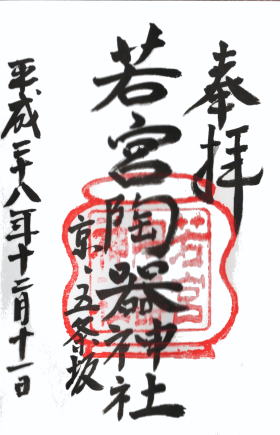 奉拝
若宮陶器神社
京・五条坂
平成二十八年十二月十一日